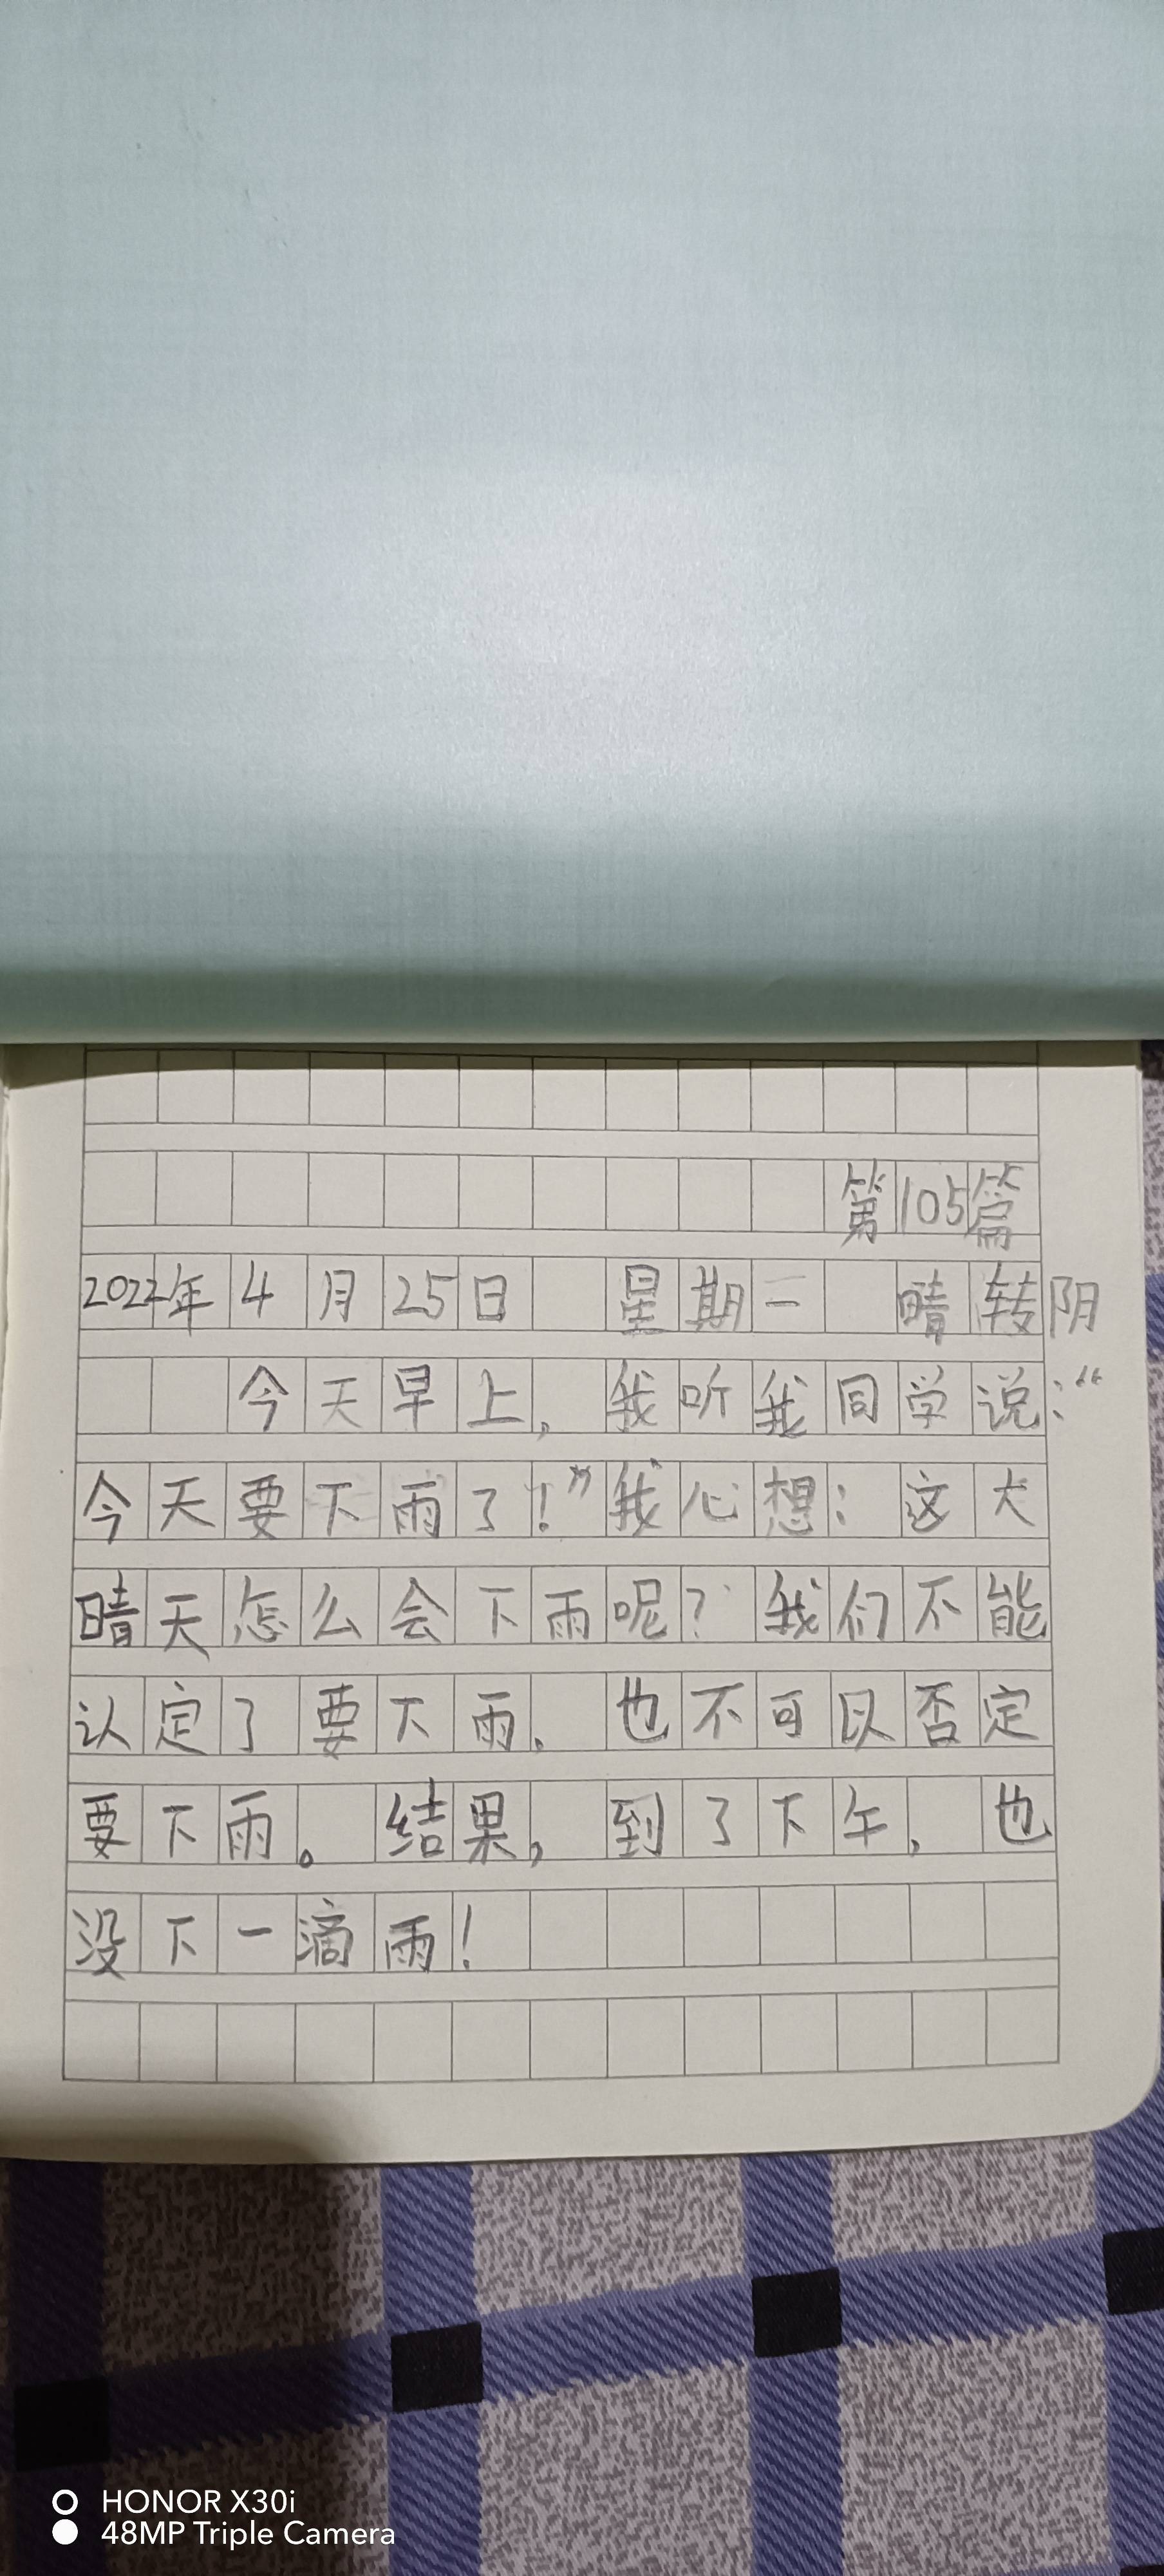 第105篇
2022年4月25日 星期一 晴转阴
今天早上,我听我同学说:“
今天要下雨了!”我心想:这大
晴天怎么会下雨呢?我们不能
认定了要下雨,也不可以否定
要下雨。结果,到了下午,也
没下一滴雨!
HONOR X30i
48MP Triple Camera